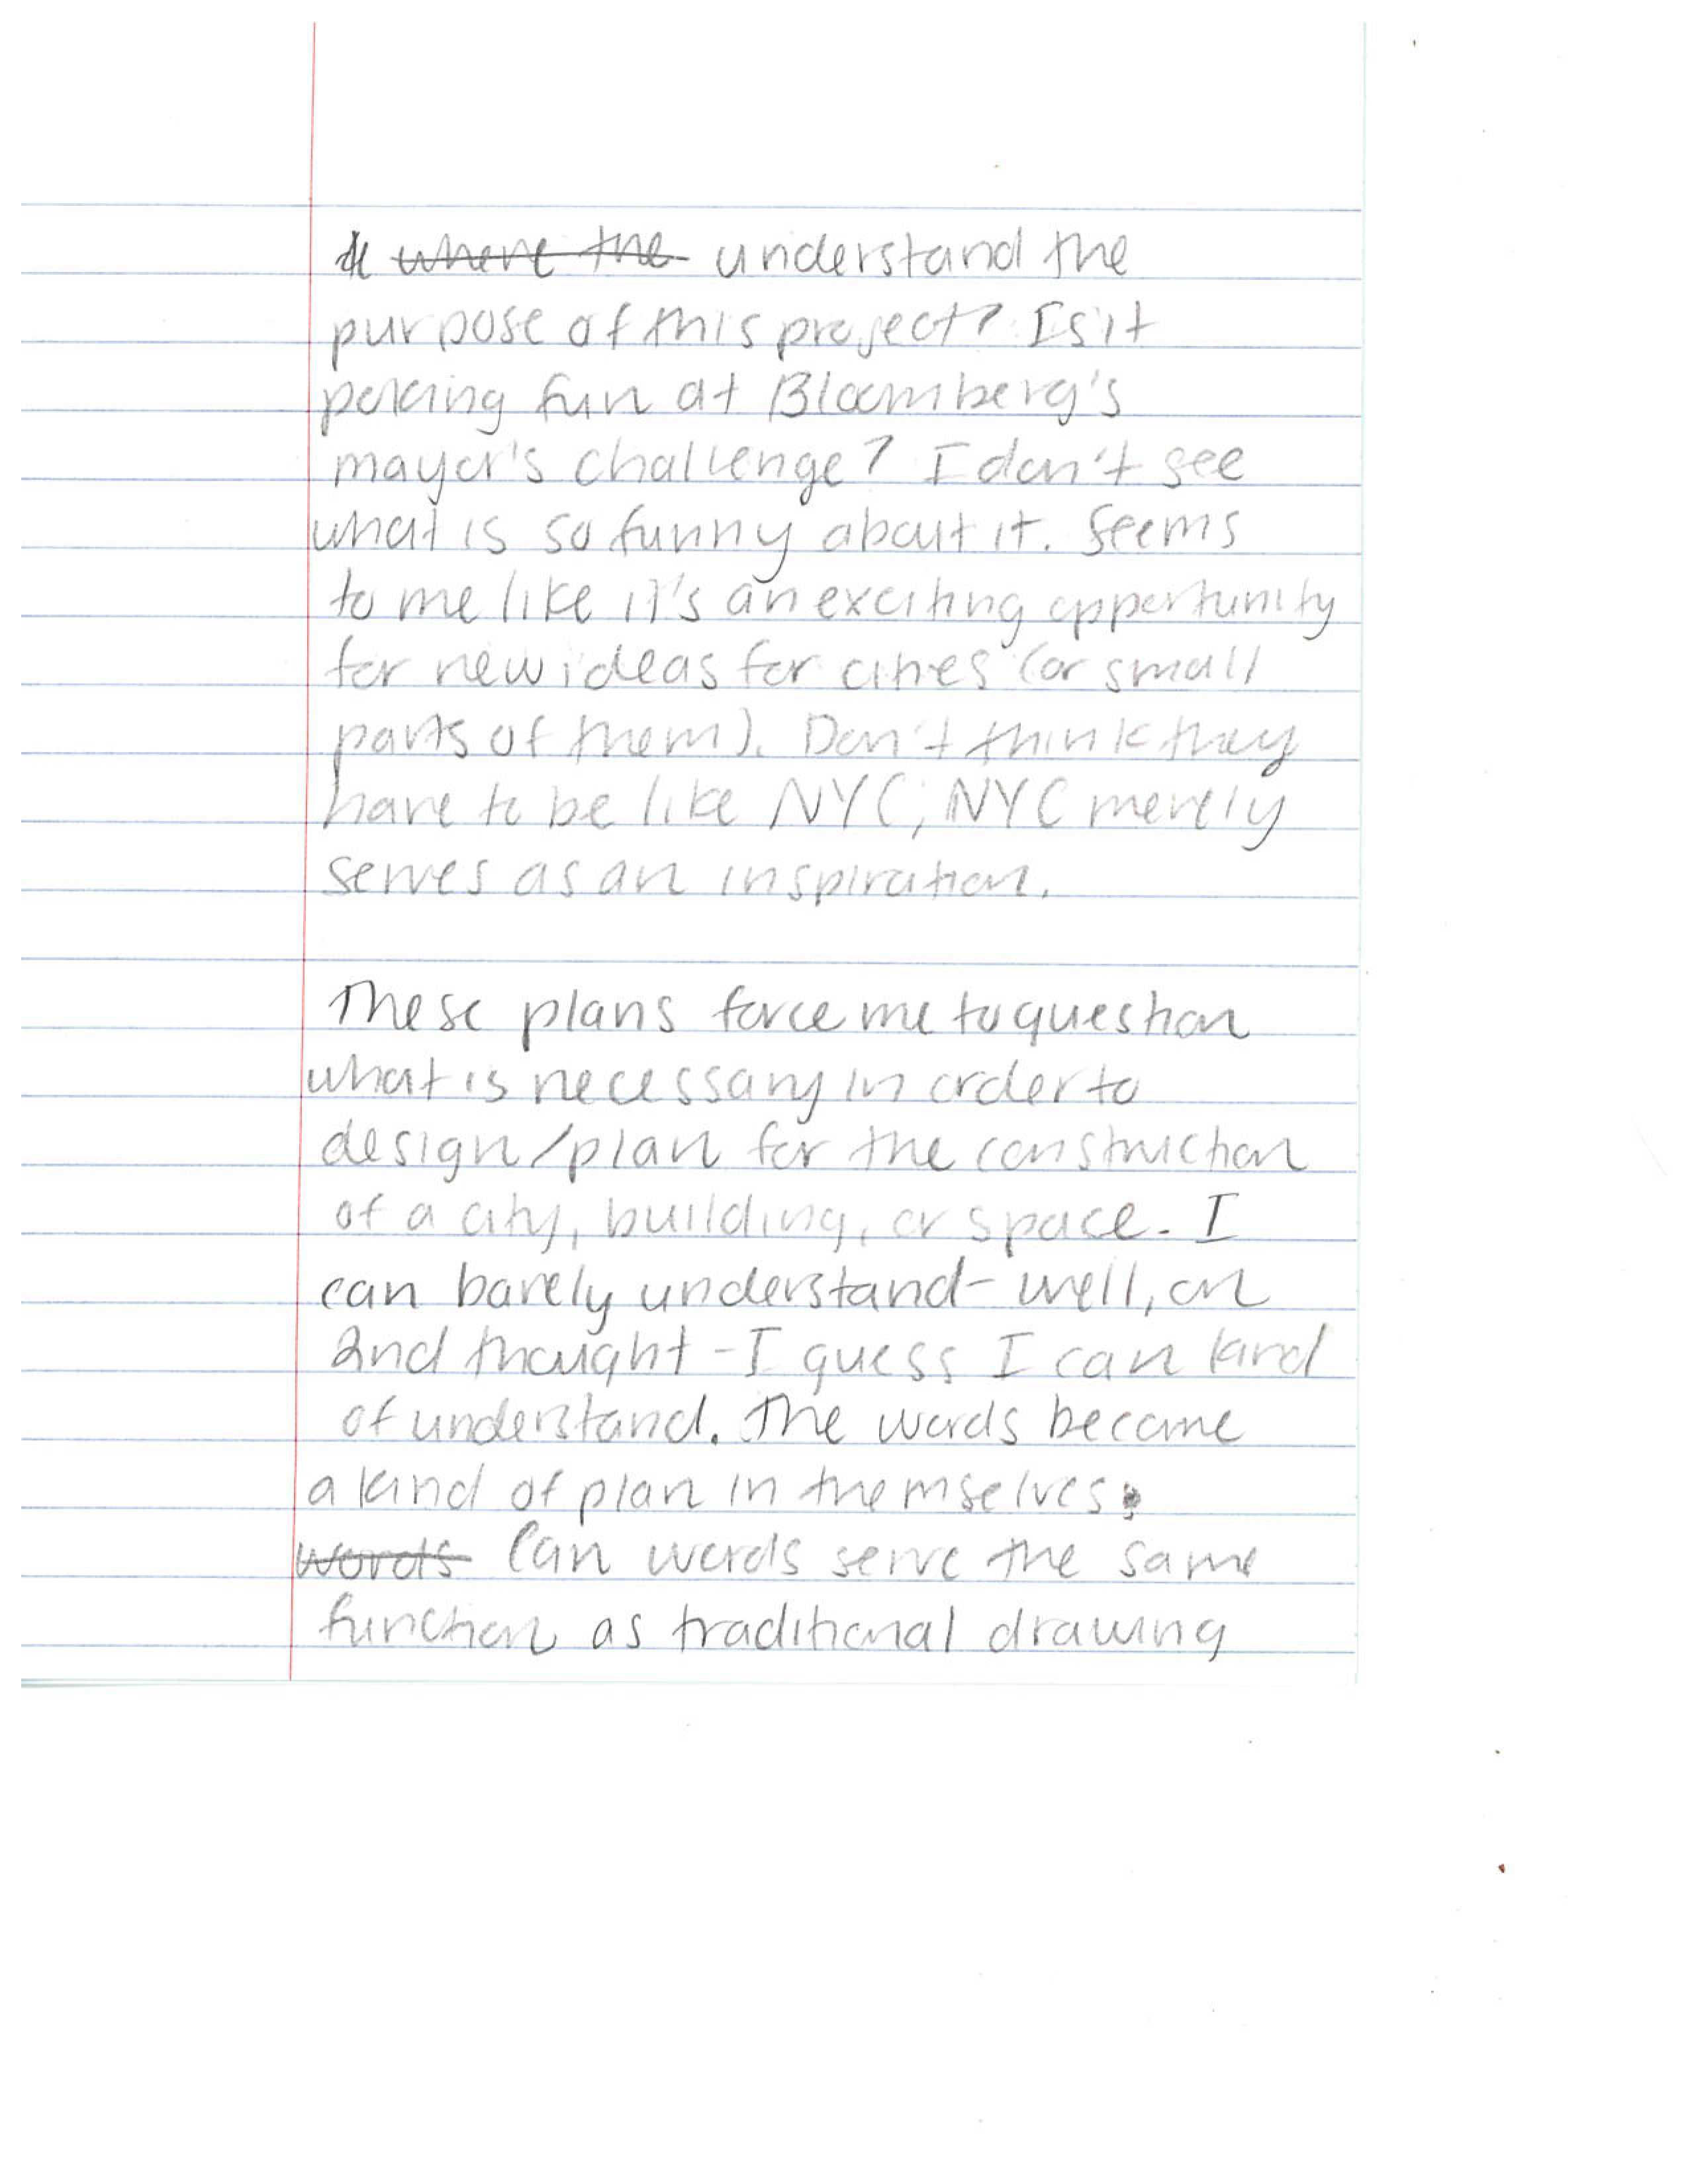 ~~where the~~ understand the
purpose of this project? Is it
poking fun at Bloomberg's
mayor's challenge? I don't see
what is so funny about it. Seems
to me like it's an exciting opportunity
for new ideas for cities (or small
parts of them). Don't think they
have to be like NYC; NYC merely
serves as an inspiration.
These plans force me to question
what is necessary in order to
design/plan for the construction
of a city, building, or space. I
can barely understand - well, on
2nd thought - I guess I can kind
of understand. The words become
a kind of plan in themselves;
~~words~~ Can words serve the same
function as traditional drawing